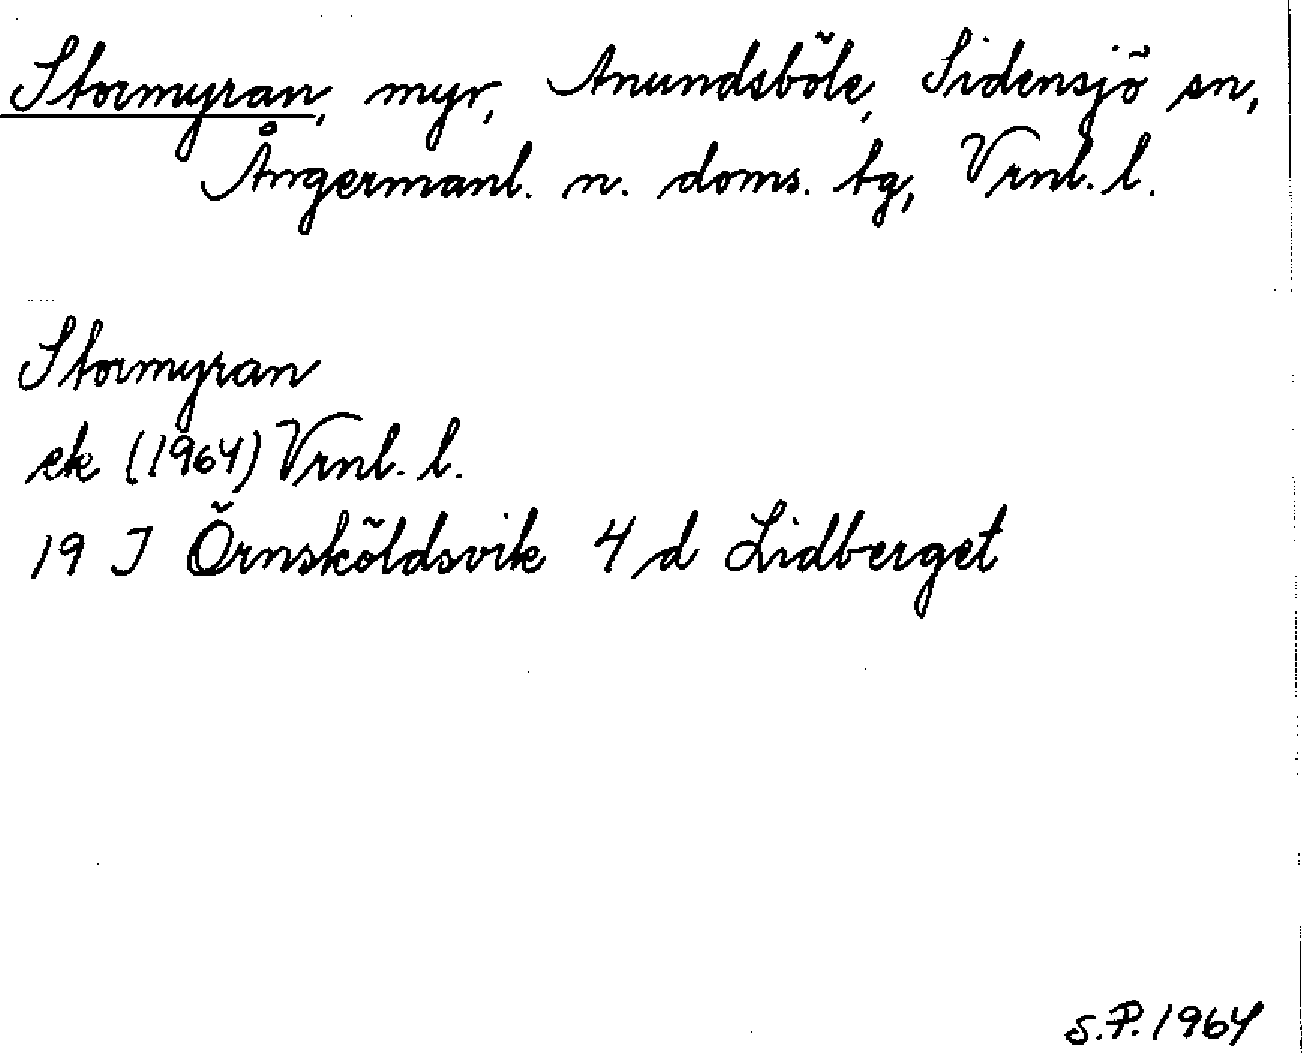 Stormyran, myr, Anundsböle, Sidensjö sn,
Ångermanl. n. doms. tg, Vrnl. l.
Stormyran
ek (1964) Vrnl. l.
19 J Örnsköldsvik 4 d Lidberget
S.P. 1964